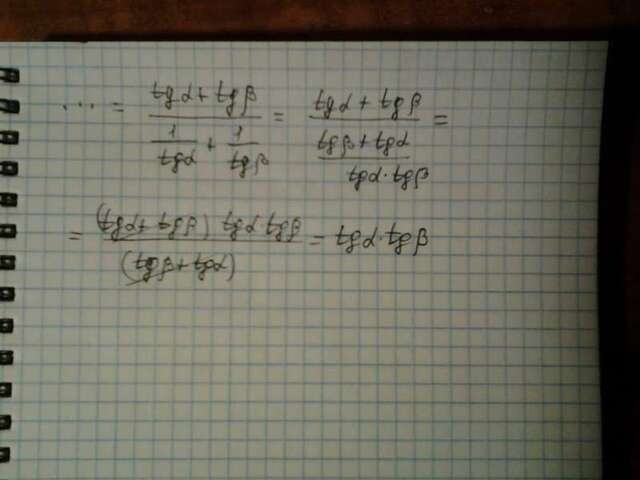 ... = (tgα + tgβ) / (1/tgα + 1/tgβ) = (tgα + tgβ) / ((tgβ + tgα) / (tgα · tgβ)) =
= (tgα + tgβ) tgα · tgβ / (tgβ + tgα) = tgα · tgβ